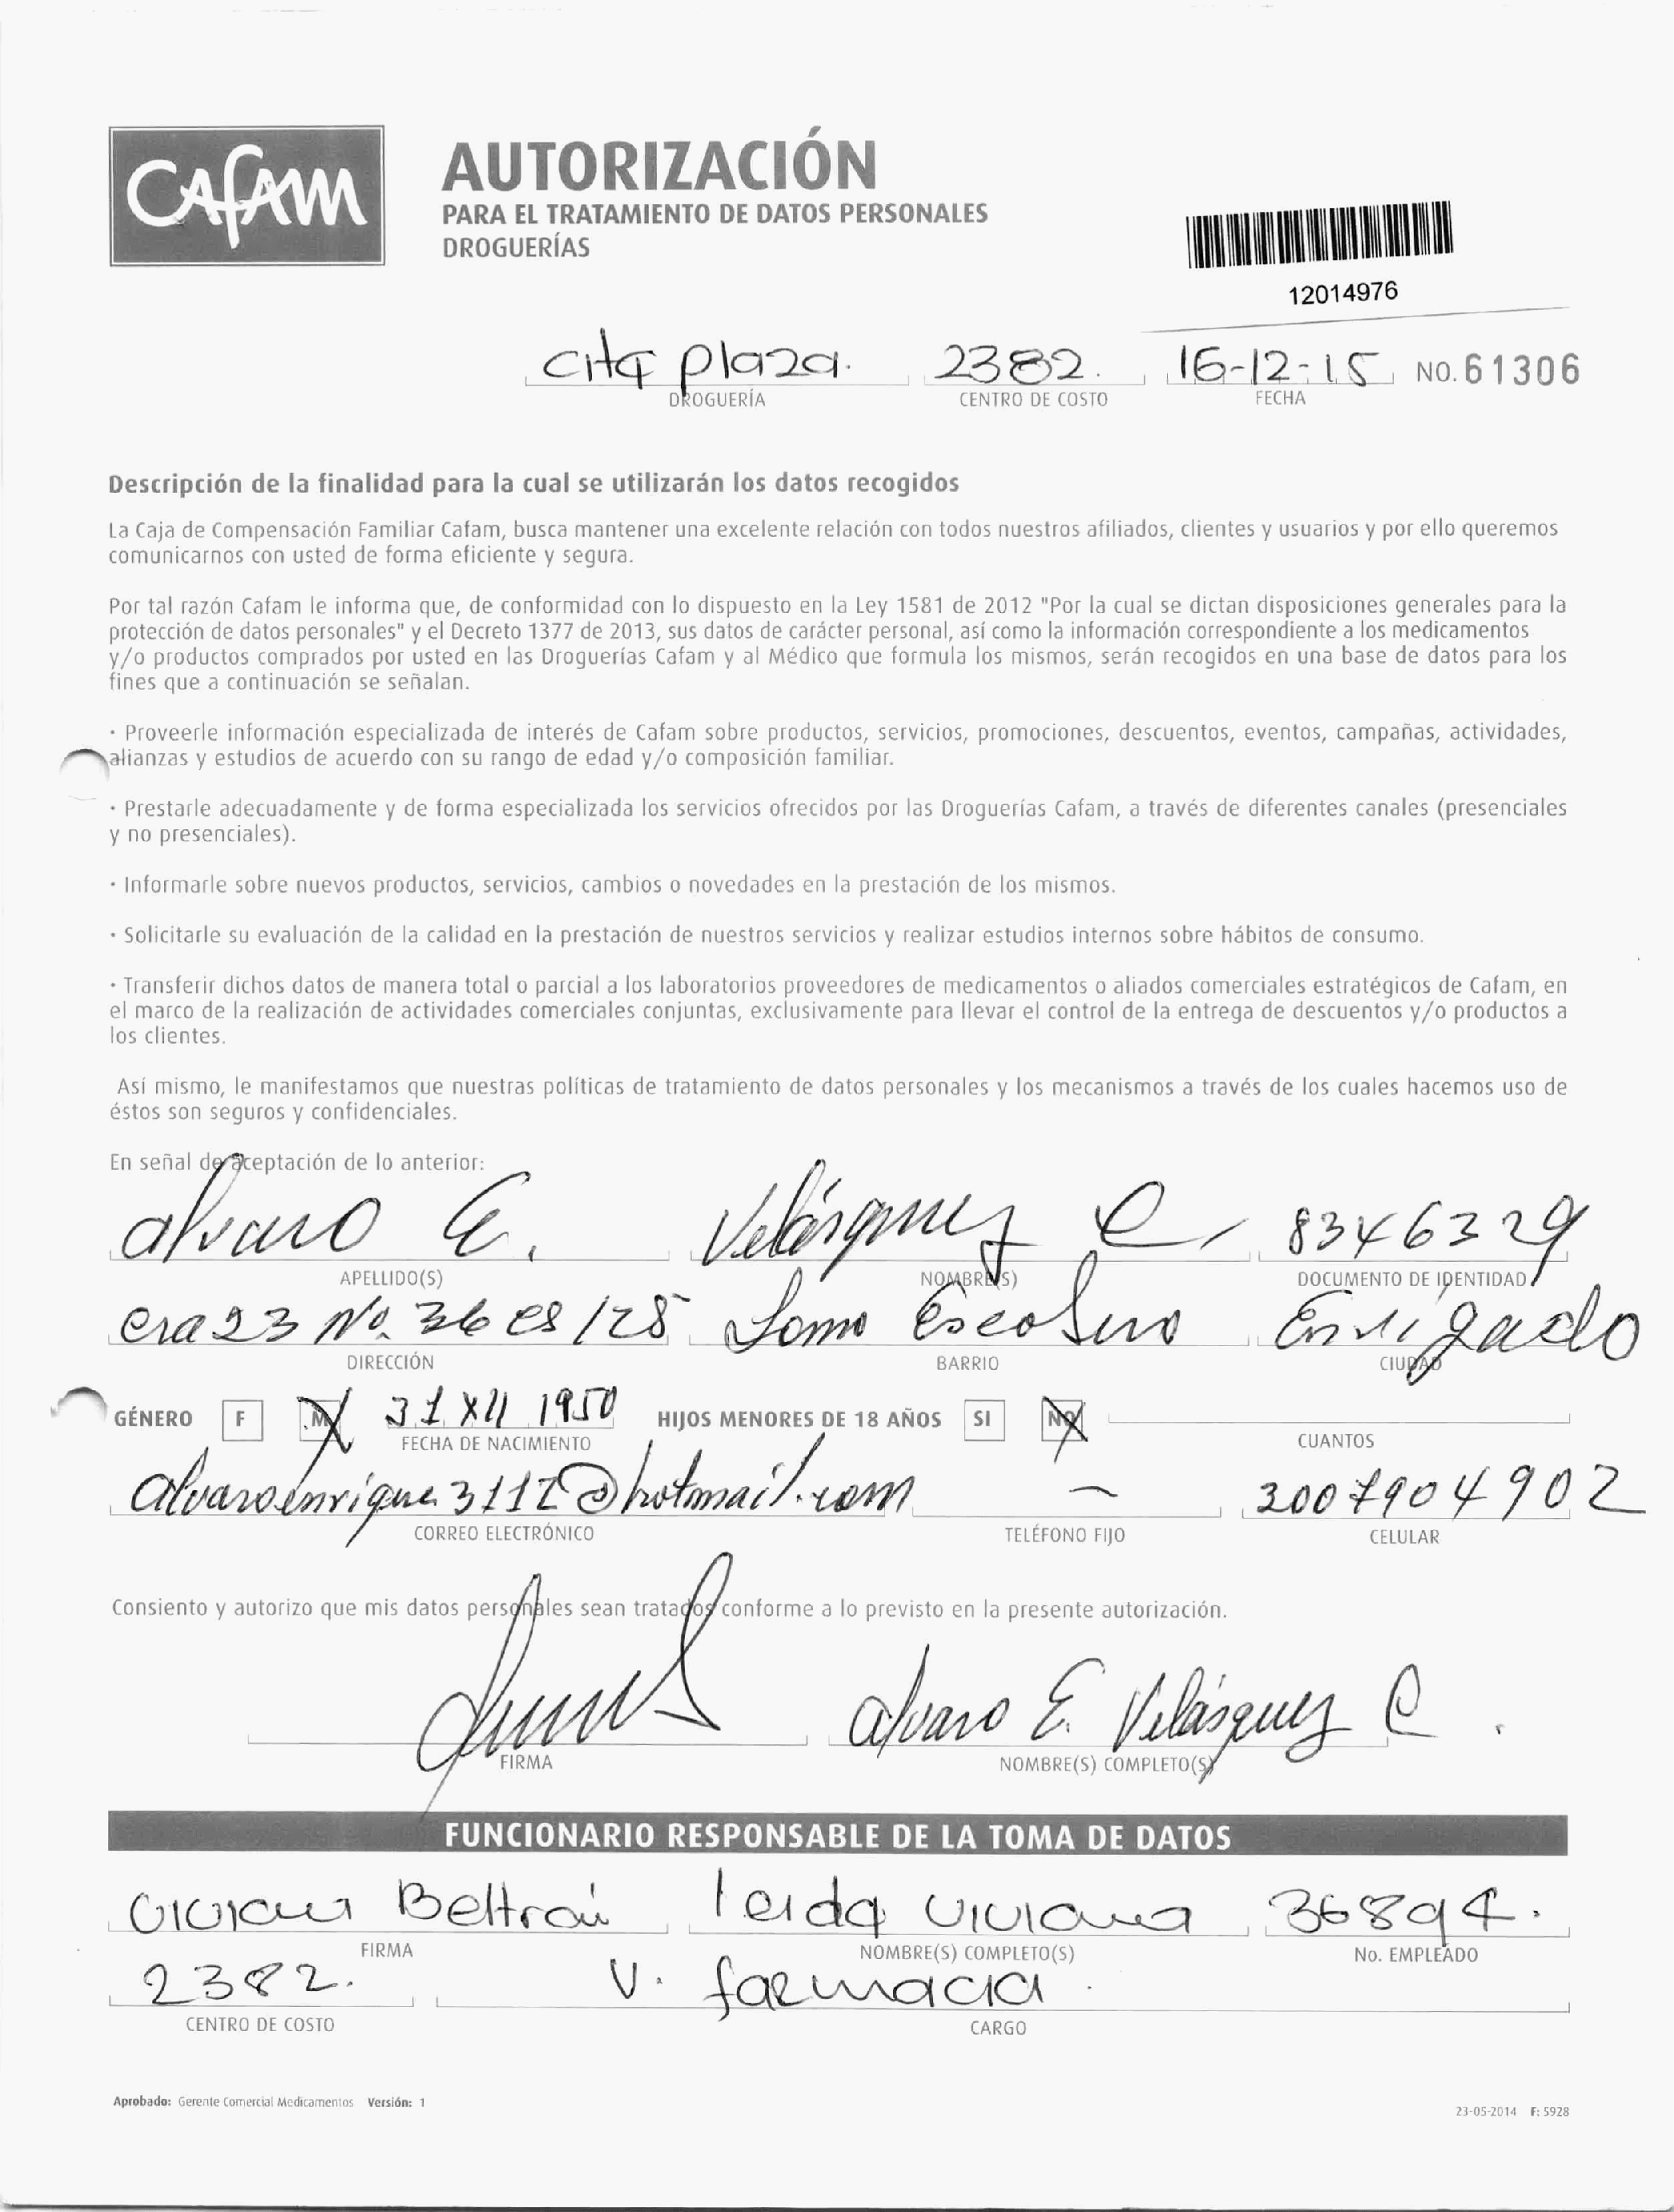 CAFAM
AUTORIZACIÓN
PARA EL TRATAMIENTO DE DATOS PERSONALES
DROGUERÍAS
12014976
city plaza. 2382. 16-12-15 NO. 61306
DROGUERÍA CENTRO DE COSTO FECHA
Descripción de la finalidad para la cual se utilizarán los datos recogidos
La Caja de Compensación Familiar Cafam, busca mantener una excelente relación con todos nuestros afiliados, clientes y usuarios y por ello queremos
comunicarnos con usted de forma eficiente y segura.
Por tal razón Cafam le informa que, de conformidad con lo dispuesto en la Ley 1581 de 2012 "Por la cual se dictan disposiciones generales para la
protección de datos personales" y el Decreto 1377 de 2013, sus datos de carácter personal, así como la información correspondiente a los medicamentos
y/o productos comprados por usted en las Droguerías Cafam y al Médico que formula los mismos, serán recogidos en una base de datos para los
fines que a continuación se señalan.
· Proveerle información especializada de interés de Cafam sobre productos, servicios, promociones, descuentos, eventos, campañas, actividades,
alianzas y estudios de acuerdo con su rango de edad y/o composición familiar.
· Prestarle adecuadamente y de forma especializada los servicios ofrecidos por las Droguerías Cafam, a través de diferentes canales (presenciales
y no presenciales).
· Informarle sobre nuevos productos, servicios, cambios o novedades en la prestación de los mismos.
· Solicitarle su evaluación de la calidad en la prestación de nuestros servicios y realizar estudios internos sobre hábitos de consumo.
· Transferir dichos datos de manera total o parcial a los laboratorios proveedores de medicamentos o aliados comerciales estratégicos de Cafam, en
el marco de la realización de actividades comerciales conjuntas, exclusivamente para llevar el control de la entrega de descuentos y/o productos a
los clientes.
Así mismo, le manifestamos que nuestras políticas de tratamiento de datos personales y los mecanismos a través de los cuales hacemos uso de
éstos son seguros y confidenciales.
En señal de aceptación de lo anterior:
Alvaro E. Velásquez C. 8346329
APELLIDO(S) NOMBRE(S) DOCUMENTO DE IDENTIDAD
cra 23 No. 36 /128 Loma Escobero Envigado
DIRECCIÓN BARRIO CIUDAD
GÉNERO F M 31 XII 1950 HIJOS MENORES DE 18 AÑOS SI NO
FECHA DE NACIMIENTO CUANTOS
alvaroenrique3112@hotmail.com — 3007904902
CORREO ELECTRÓNICO TELÉFONO FIJO CELULAR
Consiento y autorizo que mis datos personales sean tratados conforme a lo previsto en la presente autorización.
Alvaro E. Velásquez C.
FIRMA NOMBRE(S) COMPLETO(S)
FUNCIONARIO RESPONSABLE DE LA TOMA DE DATOS
Viviana Beltrán leida viviana 36894.
FIRMA NOMBRE(S) COMPLETO(S) No. EMPLEADO
2382. V. farmacia.
CENTRO DE COSTO CARGO
Aprobado: Gerente Comercial Medicamentos Versión: 1
23-05-2014 F: 5928